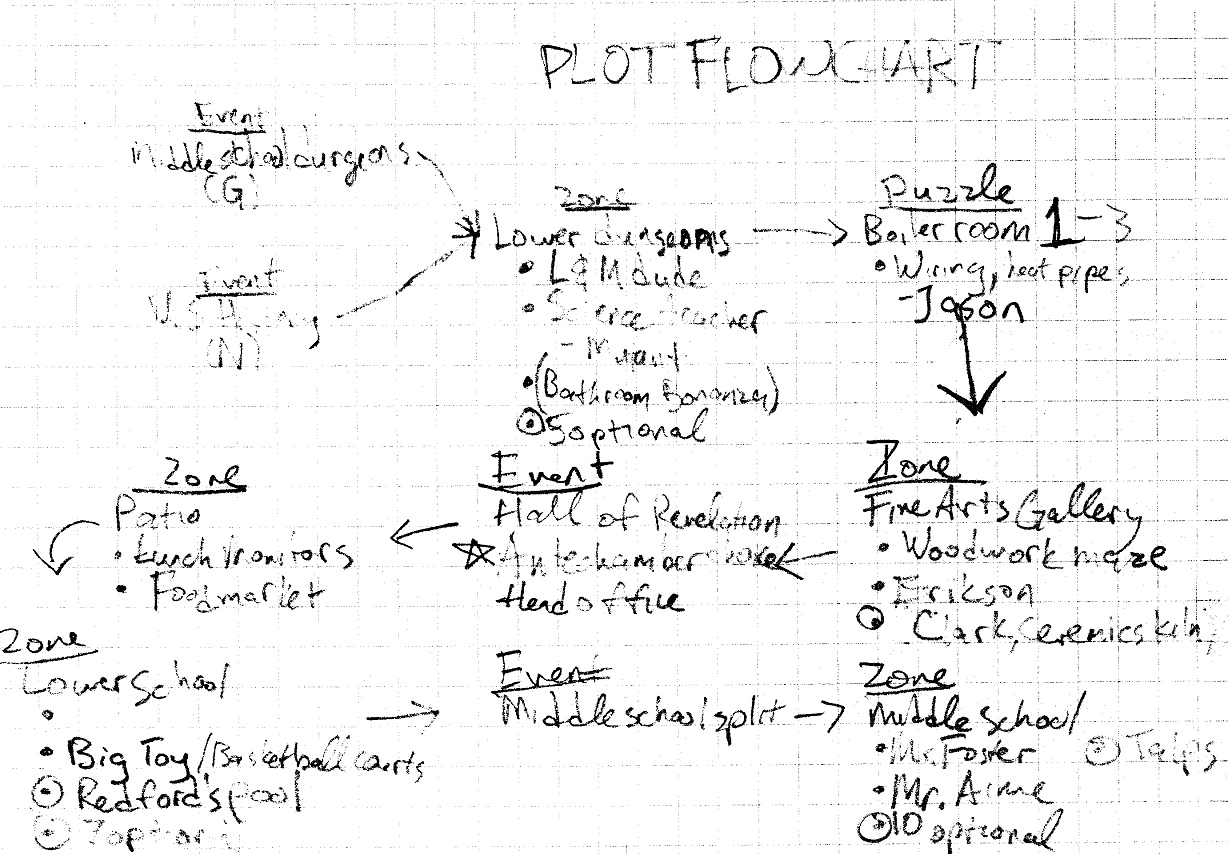 PLOT FLOWCHART
Event
Middle school dungeons
(G)
Event
(N)
Zone
Lower dungeons
• L & M dude
• Science teacher
• (Bathroom Bonanza)
5 optional
Puzzle
Boiler room 1-3
• Wiring, heat pipes
- Jason
Zone
Fine Arts Gallery
• Woodwork maze
• Erikson
Clark, Ceremics kiln
Event
Hall of Revelation
Antechamber
Head office
Zone
Patio
• Lunch monitors
• Food market
Zone
Lower School
• Big Toy/Basketball courts
Redford's pool
7 optional
Event
Middle school split
Zone
Middle school
• Mr. Foster
• Mr. Aime
10 optional